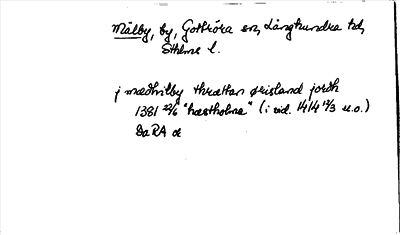 Målby, by, Gottröra sn, Långhundra hd,
Sthlms l.
j mædhilby threttan ørisland jordh
1381 22/6 "hæstholma" (i vid. 1414 11/3 u.o.)
DaRA